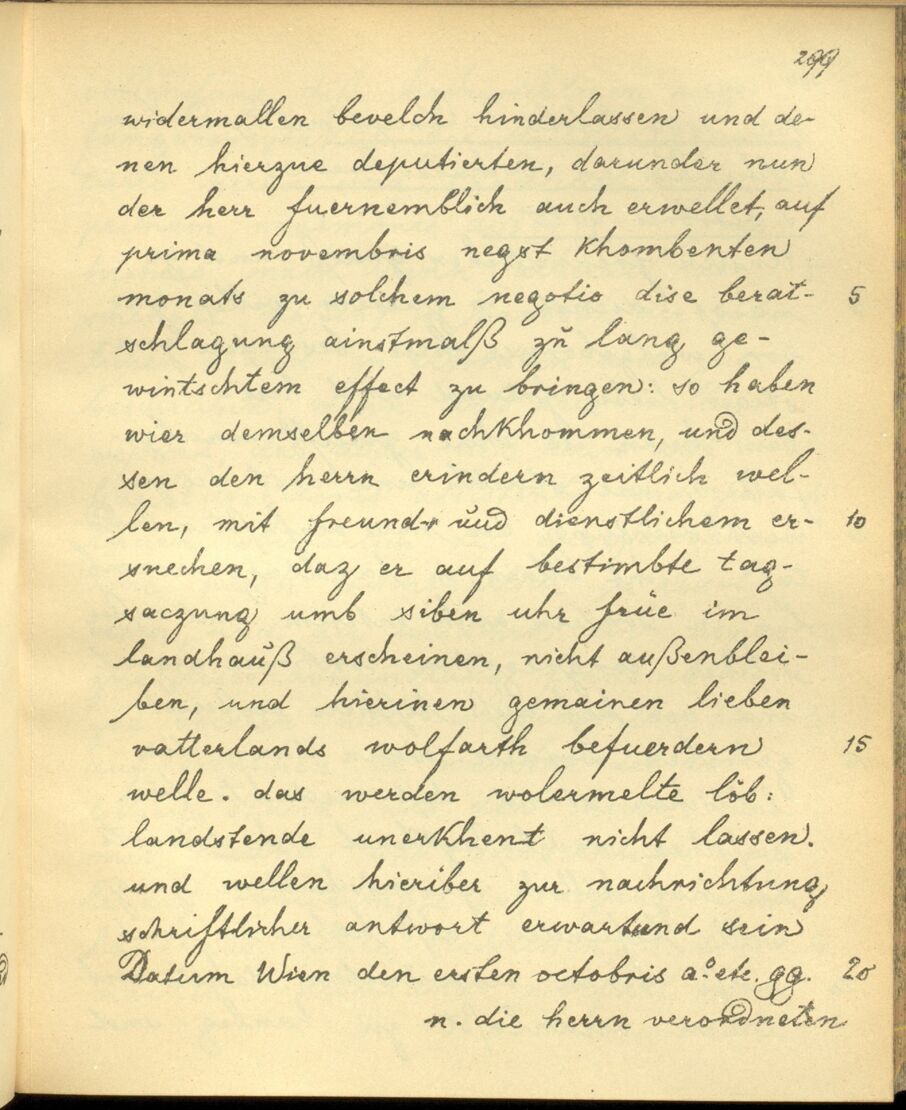 299
widermallen bevelch hinderlassen und de-
nen hierzue deputierten, darunder nun
der herr fuernemblich auch erwellet, auf
prima novembris negst khombenten
monats zu solchem negotio dise berat- 5
schlagung ainstmalß zŭ lang ge-
wintschtem effect zu bringen: so haben
wier demselben nachkhommen, und des-
sen den herrn erindern zeitlich wel-
len, mit freund- und dienstlichem er- 10
suechen, daz er auf bestimbte tag-
saczung umb siben uhr früe im
landhaŭß erscheinen, nicht außenblei-
ben, und hierinen gemainen lieben
vatterlands wolfarth befuerdern 15
welle. das werden wolermelte löb:
landstende unerkhent nicht lassen.
und wellen hieriber zur nachrichtung
schriftlicher antwort erwartund sein
Datum Wien den ersten octobris a.º etc. 99. 20
n. die herrn verordneten